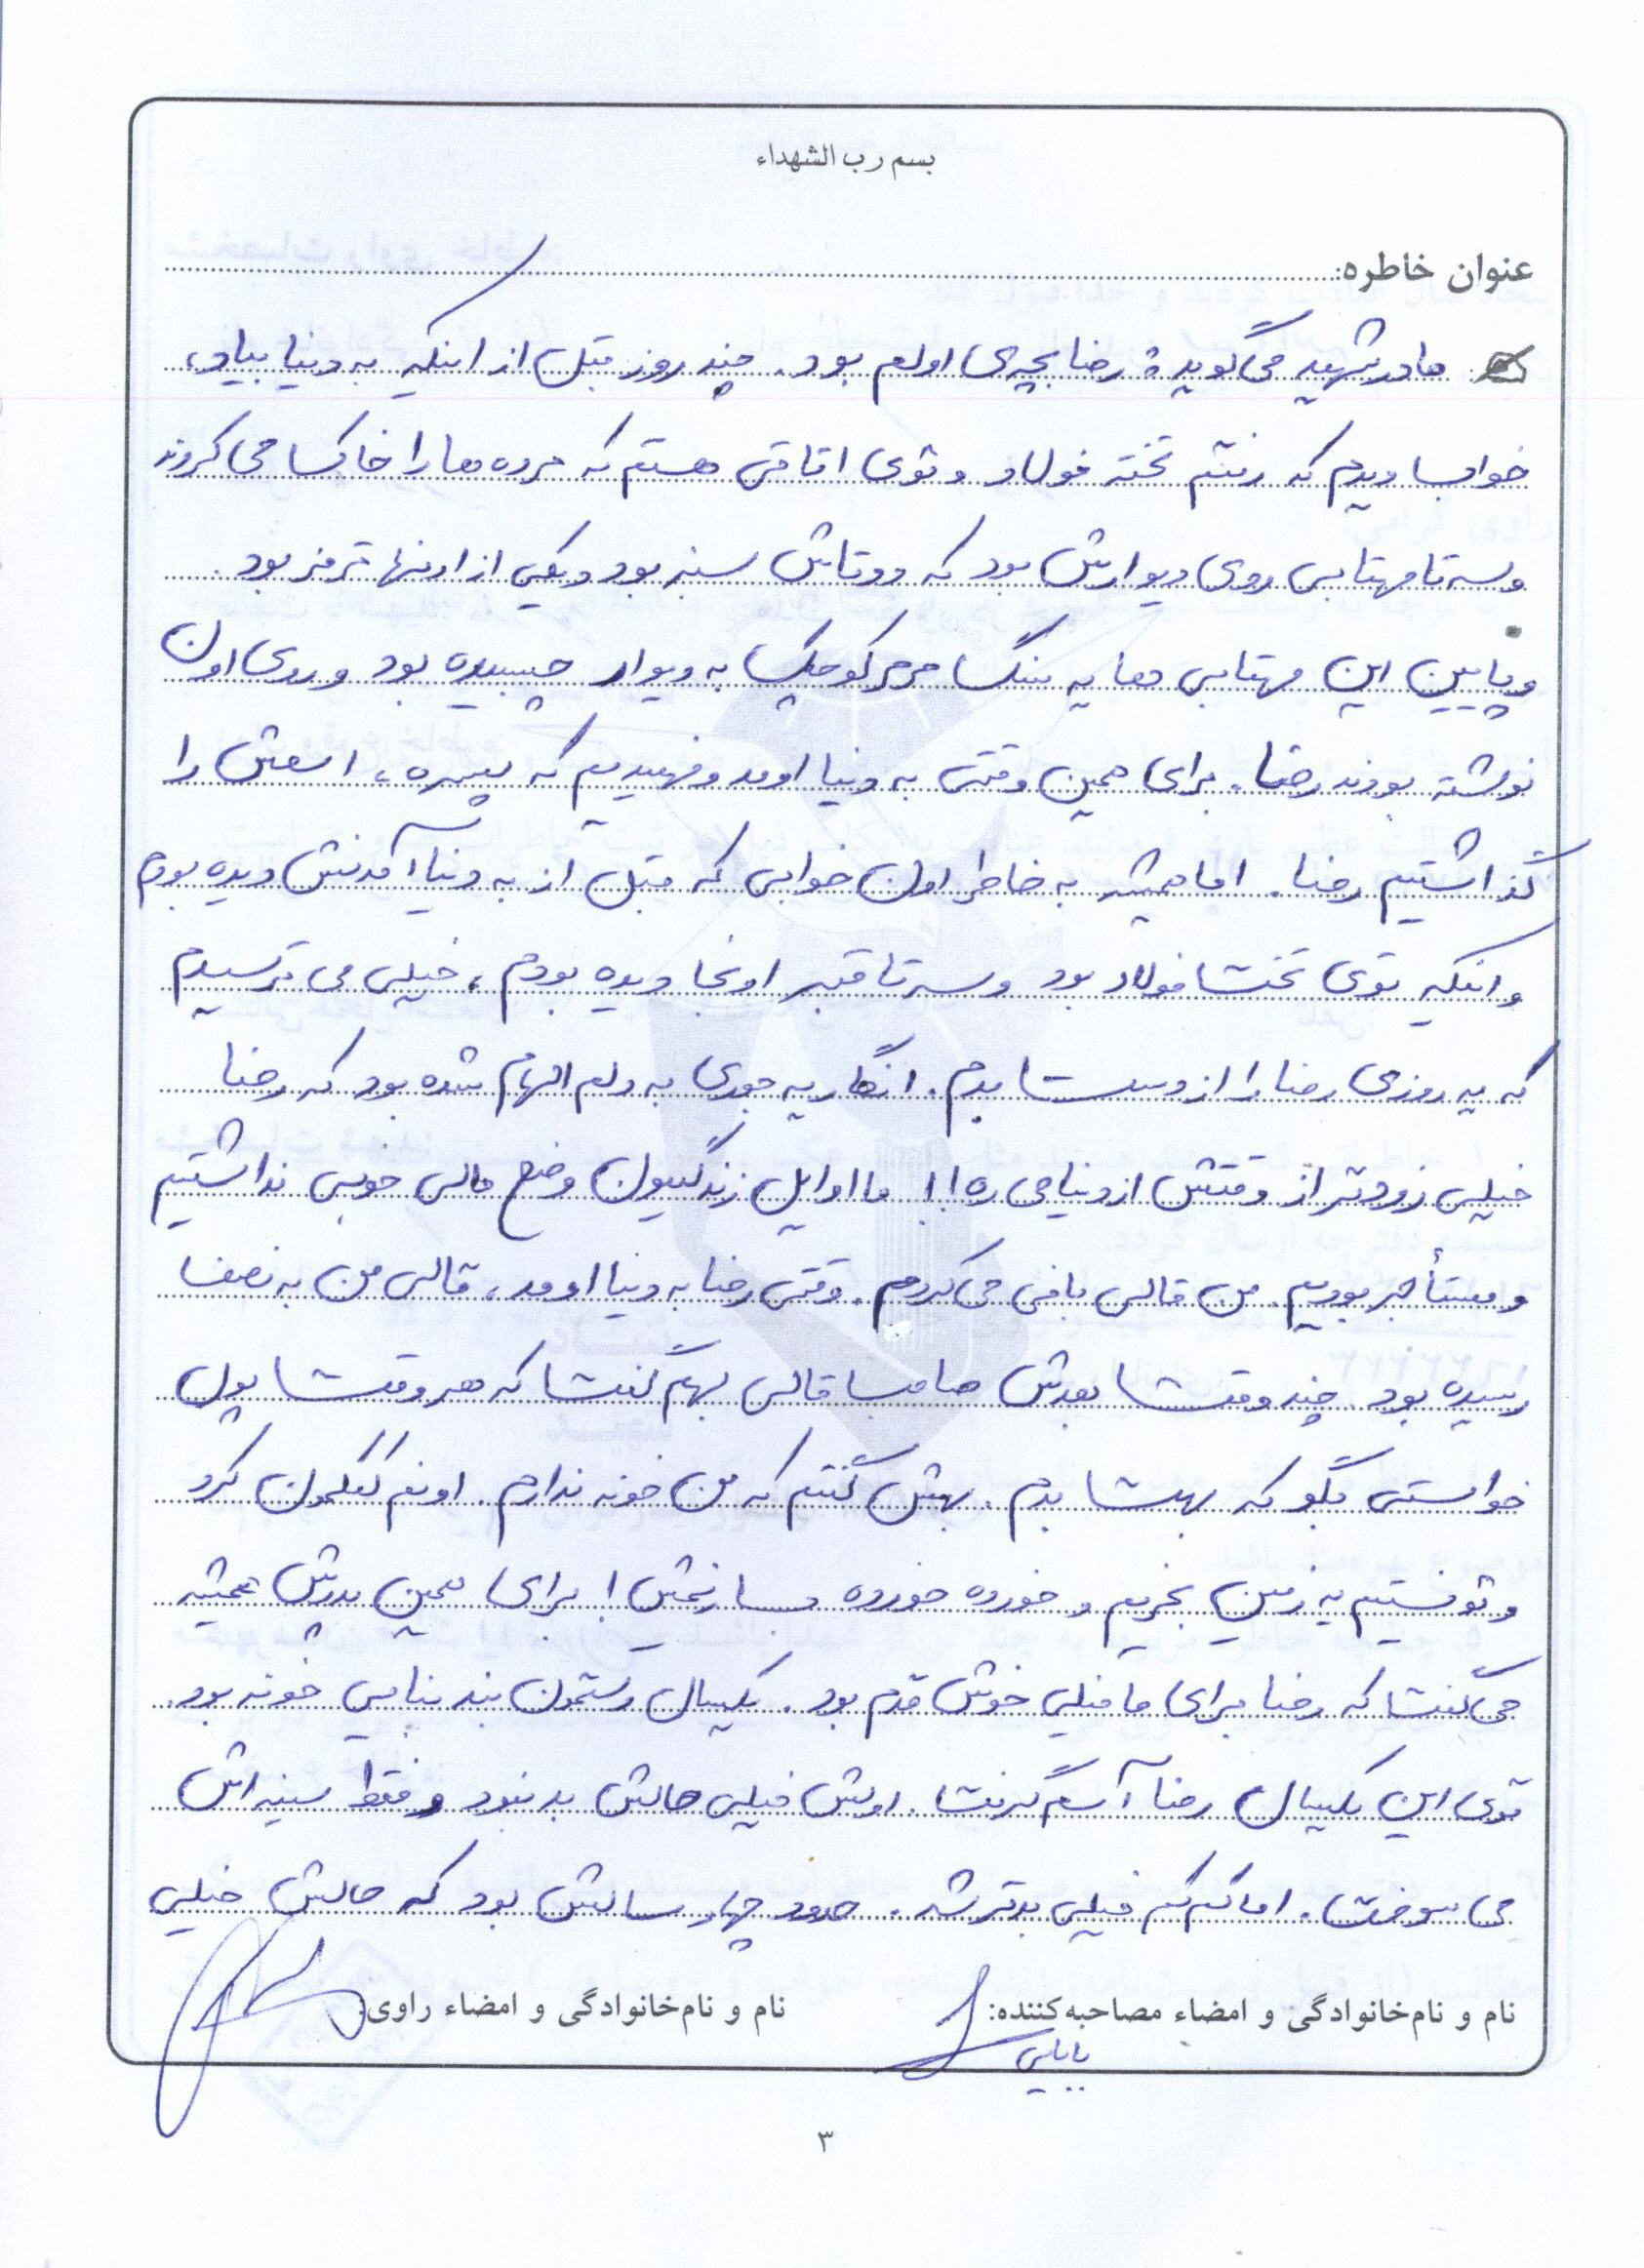 بسم رب الشهداء
عنوان خاطره:
مادر شهید می گوید: رضا بچه‌ی اولم بود. چند روز قبل از اینکه به دنیا بیاد،
خواب دیدم که رفتم تخته فولاد و توی اتاقی هستم که مرده ها را خاک می کردند
وسه تا مهتابی روی دیوارش بود که دوتاش سبز بود و یکی از اونها قرمز بود.
و پایین این مهتابی ها یه سنگ مرمر کوچک به دیوار چسبیده بود و روی اون
نوشته بودند رضا. برای همین وقتی به دنیا اومد و فهمیدیم که پسره، اسمش را
گذاشتیم رضا. اما همیشه به خاطر اون خوابی که قبل از به دنیا آمدنش دیده بودم
و اینکه توی تخت فولاد بود و سه تا قبر اونجا دیده بودم، خیلی می ترسیدم
که یه روزی رضا را از دست بدم. انگار یه جوری به دلم الهام شده بود که رضا
خیلی زودتر از وقتش از دنیا می ره!! ما اوایل زندگیمون وضع مالی خوبی نداشتیم
و مستأجر بودیم. من قالی بافی می کردم. وقتی رضا به دنیا اومد، قالی من به نصف
رسیده بود. چند وقت بعدش صاحب قالی بهم گفت که هر وقت پول
خواستی بگو که بهت بدم. بهش گفتم که من خونه ندارم. اونم کمکمون کرد
و تونستیم یه زمین بخریم و خورده خورده بسازیمش! برای همین پدرش همیشه
می گفت که رضا برای ما خیلی خوش قدم بود. یکسال دستمون بند بنایی خونه بود.
توی این یکسال رضا آسم گرفت. اولش خیلی حالش بد نبود و فقط سینه اش
می سوخت. اما کم کم خیلی بدتر شد. حدود چهار سالش بود که حالش خیلی
نام و نام‌خانوادگی و امضاء مصاحبه‌کننده: نام و نام‌خانوادگی و امضاء راوی:
بابایی
۳